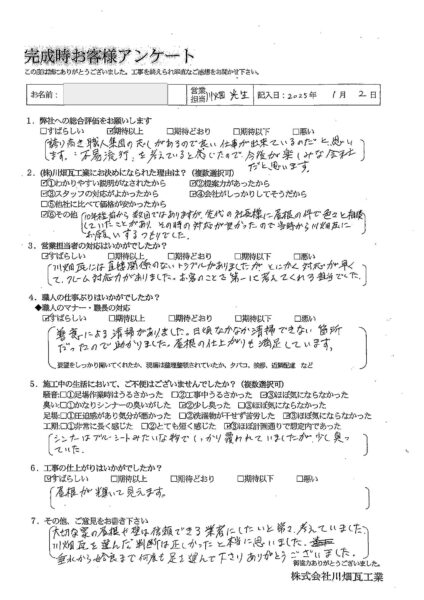 完成時お客様アンケート
この度は誠にありがとうございました。工事を終えられ率直なご感想をお聞かせ下さい。
お名前: 営業担当 川畑 先生 記入日:2025年 1月 2日
1.弊社への総合評価をお願いします
□すばらしい ☑期待以上 □期待どおり □期待以下 □悪い
誇り高き職人集団の志しがあるので良い仕事が出来ているのだと思い
ます。
だと思います。
2.(株)川畑瓦工業にお決めになられた理由は?(複数選択可)
☑①わかりやすい説明がなされたから ☑②提案力があったから
☑③スタッフの対応がよかったから ☑④会社がしっかりしてそうだから
□⑤他社に比べて価格が安かったから
☑⑥その他 10年程前から数回ではありますが、先代の社長様に屋根の件で色々と相談
していたことがあり、その時の対応が良かったので当時から川畑瓦に
お願いするつもりでした。
3.営業担当者の対応はいかがでしたか?
☑すばらしい □期待以上 □期待どおり □期待以下 □悪い
川畑瓦には直接関係のないトラブルがありましたが、とにかく対応が早く
て、クレーム対応力がありました。お客のことを第一に考えてくれる担当でした。
4.職人の仕事ぶりはいかがでしたか?
◆職人のマナー・職長の対応
☑すばらしい □期待以上 □期待どおり □期待以下 □悪い
善意による清掃がありました。日頃なかなか清掃できない箇所
だったので助かりました。屋根の仕上がりも満足しています。
要望をしっかり聞いてくれたか、現場は整理整頓されていたか、タバコ、挨拶、近隣配慮 など
5.施工中の生活において、ご不便はございませんでしたか?(複数選択可)
騒音:□①足場作業時はうるさかった □②工事中うるさかった ☑③ほぼ気にならなかった
臭い:□①かなりシンナーの臭いがした ☑②少し臭った □③ほぼ気にならなかった
足場:□①圧迫感があり気分が悪かった □②洗濯物が干せず苦労した ☑③ほぼ気にならなかった
工期:□①非常に長く感じた □②とても短く感じた ☑③ほぼ計画通りで想定内であった
シンナーはブルーシートみたいな物でしっかり覆われていましたが少し臭っ
ていた。
6.工事の仕上がりはいかがでしたか?
☑すばらしい □期待以上 □期待どおり □期待以下 □悪い
屋根が輝いて見えます。
7.その他、ご意見をお書き下さい
大切な家の屋根や壁は信頼できる業者にしたいと常々考えていました。
川畑瓦を選んだ判断は正しかったと本当に思いました。
垂水から姶良まで何度も足を運んで下さりありがとうございました。
御協力ありがとうございました。
株式会社川畑瓦工業